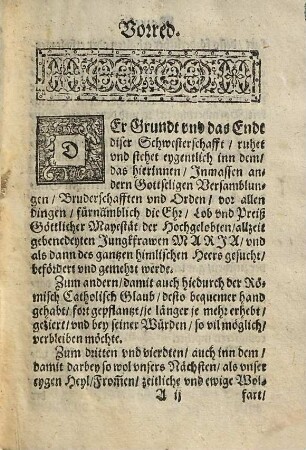 Vorred.
DEr Grundt vnd das Ende
diser Schwesterschafft / ruhet
vnd stehet eygentlich inn dem /
das hierinnen / Inmassen an-
dern Gottseligen Versamblun-
gen / Bruderschafften vnd Orden / vor allen
dingen / fürnämblich die Ehr / Lob vnd Preiß
Göttlicher Mayestät der Hochgelobten / allzeit
gebenedeyten Jungkfrawen MARIA / vnd
als dann des gantzen himlischen Heers gesucht /
befördert vnd gemehrt werde.
Zum andern / damit auch hiedurch der Rö-
misch Catholisch Glaub / desto bequemer hand
gehabt / fort gepflantzt / je länger je mehr erhebt /
geziert / vnd bey seiner Würden / so vil möglich /
verbleiben möchte.
Zum dritten vnd vierdten / auch inn dem /
damit darbey so wol vnsers Nächsten / als vnser
eygen Heyl / From̃en / zeitliche vnd ewige Wol-
A ij
fart /